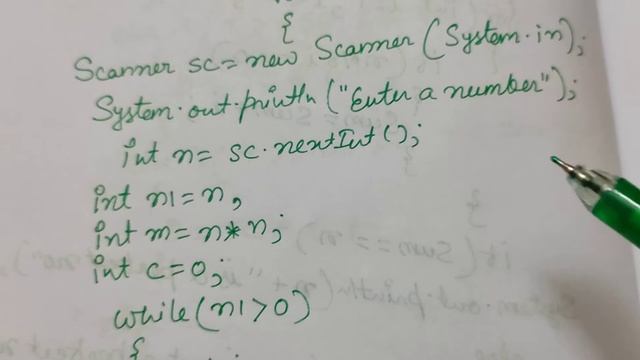 {
Scanner sc = new Scanner (System.in);
System.out.println ("Enter a number");
int n = sc.nextInt();
int n1 = n,
int m = n*n;
int c = 0;
while (n1 > 0)
{